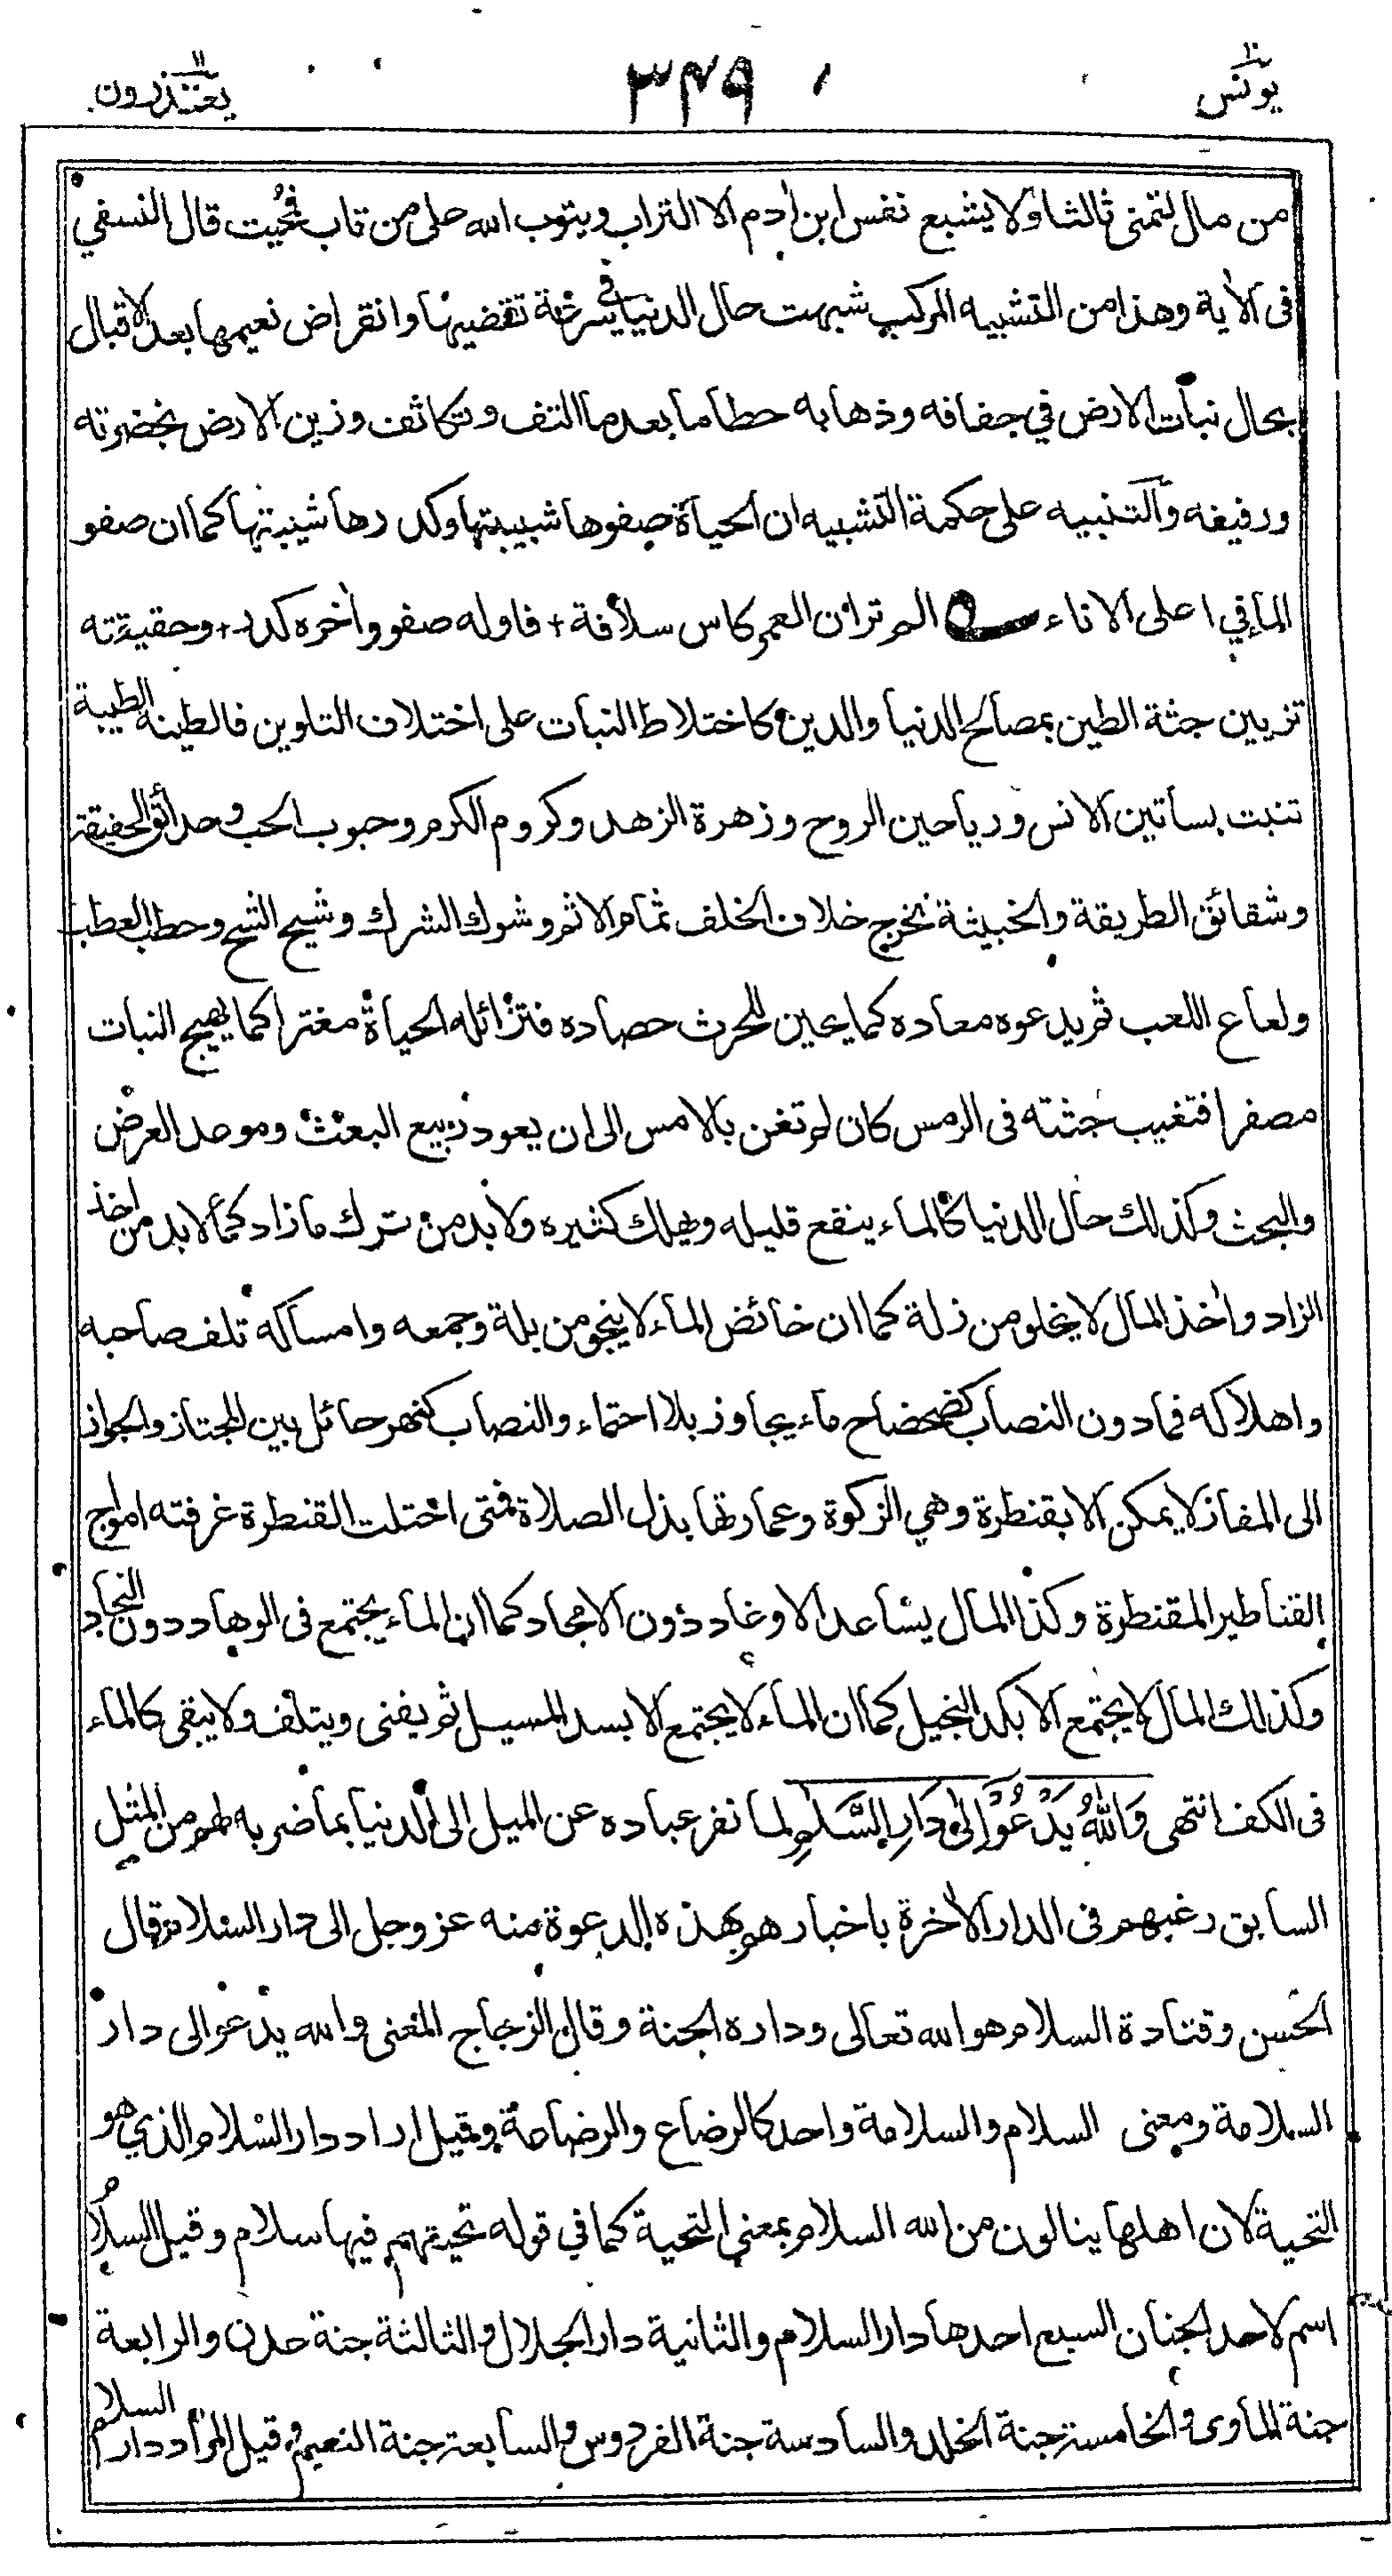 يونس ١٠
٣٤٩
يعتذرون ١١
من مال لتمنى ثالثا ولا يشبع نفس ابن ادم الا التراب ويتوب الله على من تاب فمحيت قال النسفي
فى الأية وهذا من التشبيه المركب شبهت حال الدنيا في سرعة تقضيها وانقراض نعيمها بعد الاقبال
بحال نبات الارض في جفافه وذهابه حطاما بعد ما التف وتكاثف وزين الارض بخضرته
ورفيفه والتنبيه على حكمة التشبيه ان الحياة صفوها شبيبتها وكدرها شيبتها كما ان صفو
الماء في اعلى الاناء ــه الم تر ان العمر كاس سلافة + فاوله صفو وأخره كدر + وحقيقته
تزيين جثة الطين بمصالح الدنيا والدين كاختلاط النبات على اختلاف التلوين فالطينة الطيبة
تنبت بساتين الانس ورياحين الروح وزهرة الزهد وكروم الكرم وحبوب الحب وحدائق الحقيقة
وشقائق الطريقة والخبيثة تخرج خلاف الخلف ثمام الاثم وشوك الشرك وشيح الشح وحطب العطب
ولعاع اللعب ثم يدعوه معاده كما يحين للحرث حصاده فتزائله الحياة مغترا كما يهيج النبات
مصفرا فتغيب جثته فى الرمس كان لم تغن بالامس الى ان يعود ربيع البعث وموعد العرض
والبحث وكذلك حال الدنيا كالماء ينفع قليله ويهلك كثيره ولا بد من ترك ما زاد كما لا بد من اخذ
الزاد وأخذ المال لا يخلو من زلة كما ان خائض الماء لا ينجو من بلة وجمعه وامساكه تلف صاحبه
واهلاكه فما دون النصاب كضحضاح ماء يجاوز بلا احتماء والنصاب كنهر حائل بين المجتاز والجواز
الى المفاز لا يمكن الا بقنطرة وهي الزكوة وعمارتها بذل الصلاة فمتى اختلت القنطرة غرقته امواج
القناطير المقنطرة وكذا المال يساعد الاوغاد دون الامجاد كما ان الماء يجتمع فى الوهاد دون النجاد
وكذلك المال لا يجتمع الا بكد البخيل كما ان الماء لا يجتمع الا بسد المسيل ثم يفنى ويتلف ولا يبقى كالماء
فى الكف انتهى وَاللهُ يَدْعُوْٓا اِلٰى دَارِ السَّلٰمِ لما نفر عباده عن الميل الى الدنيا بما ضربه لهم من المثل
السابق رغبهم فى الدار الأخرة باخبارهم بهذه الدعوة منه عز وجل الى دار السلام قال
الحسن وقتادة السلام هو الله تعالى وداره الجنة وقال الزجاج المعنى والله يدعو الى دار
السلامة ومعنى السلام والسلامة واحد كالرضاع والرضاعة وقيل اراد دار السلام الذي هو
التحية لان اهلها ينالون من الله السلام بمعنى التحية كما في قوله تحيتهم فيها سلام وقيل السلام
اسم لاحد الجنان السبع احدها دار السلام والثانية دار الجلال والثالثة جنة عدن والرابعة
جنة المأوى والخامسة جنة الخلد والسادسة جنة الفردوس والسابعة جنة النعيم وقيل المراد دار السلام